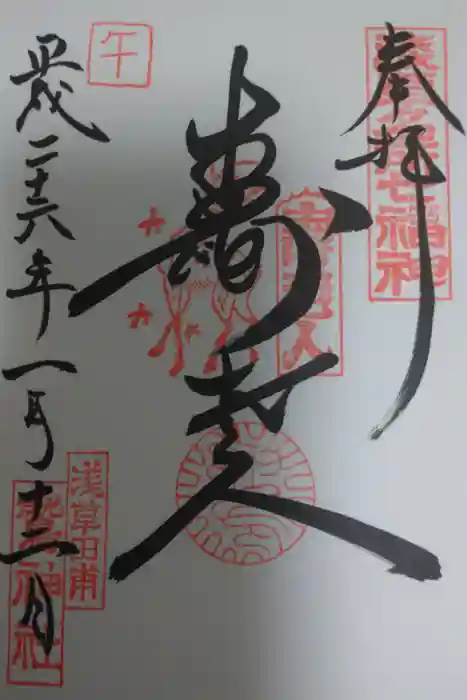 奉拝
浅草名所七福神
寿老人
午
平成二十六年一月十二日
浅草田甫
鷲神社